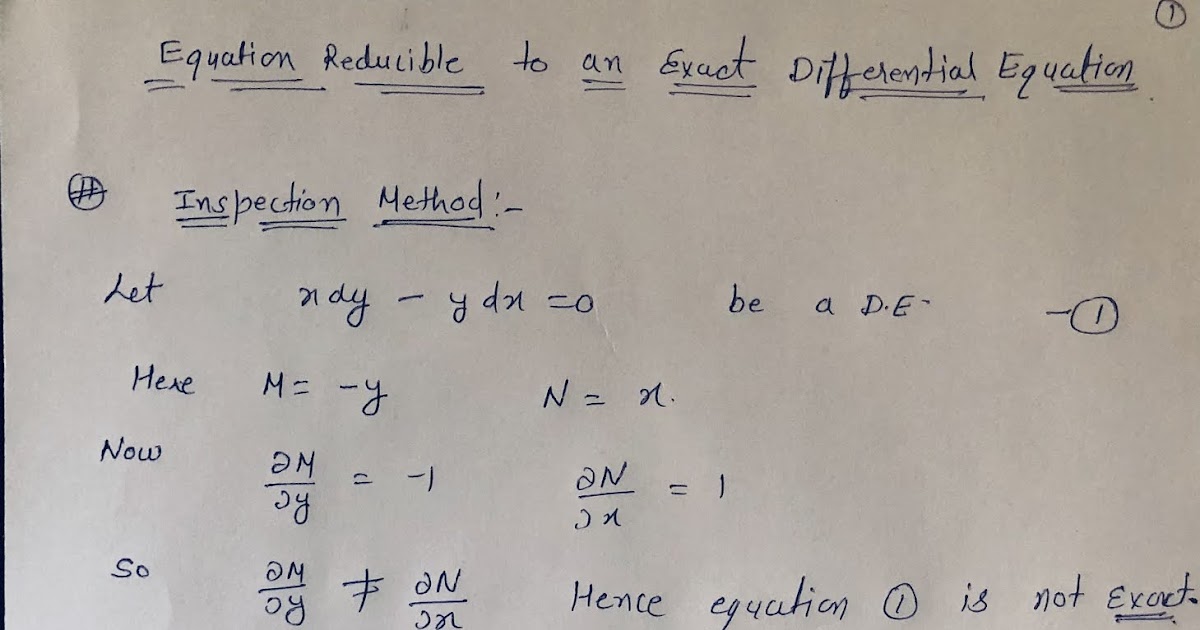 ①
Equation Reducible to an Exact Differential Equation.
# Inspection Method:-
Let x dy - y dx = 0 be a D.E. -①
Here M = -y N = x.
Now ∂M/∂y = -1 ∂N/∂x = 1
So ∂M/∂y ≠ ∂N/∂x Hence equation ① is not Exact.